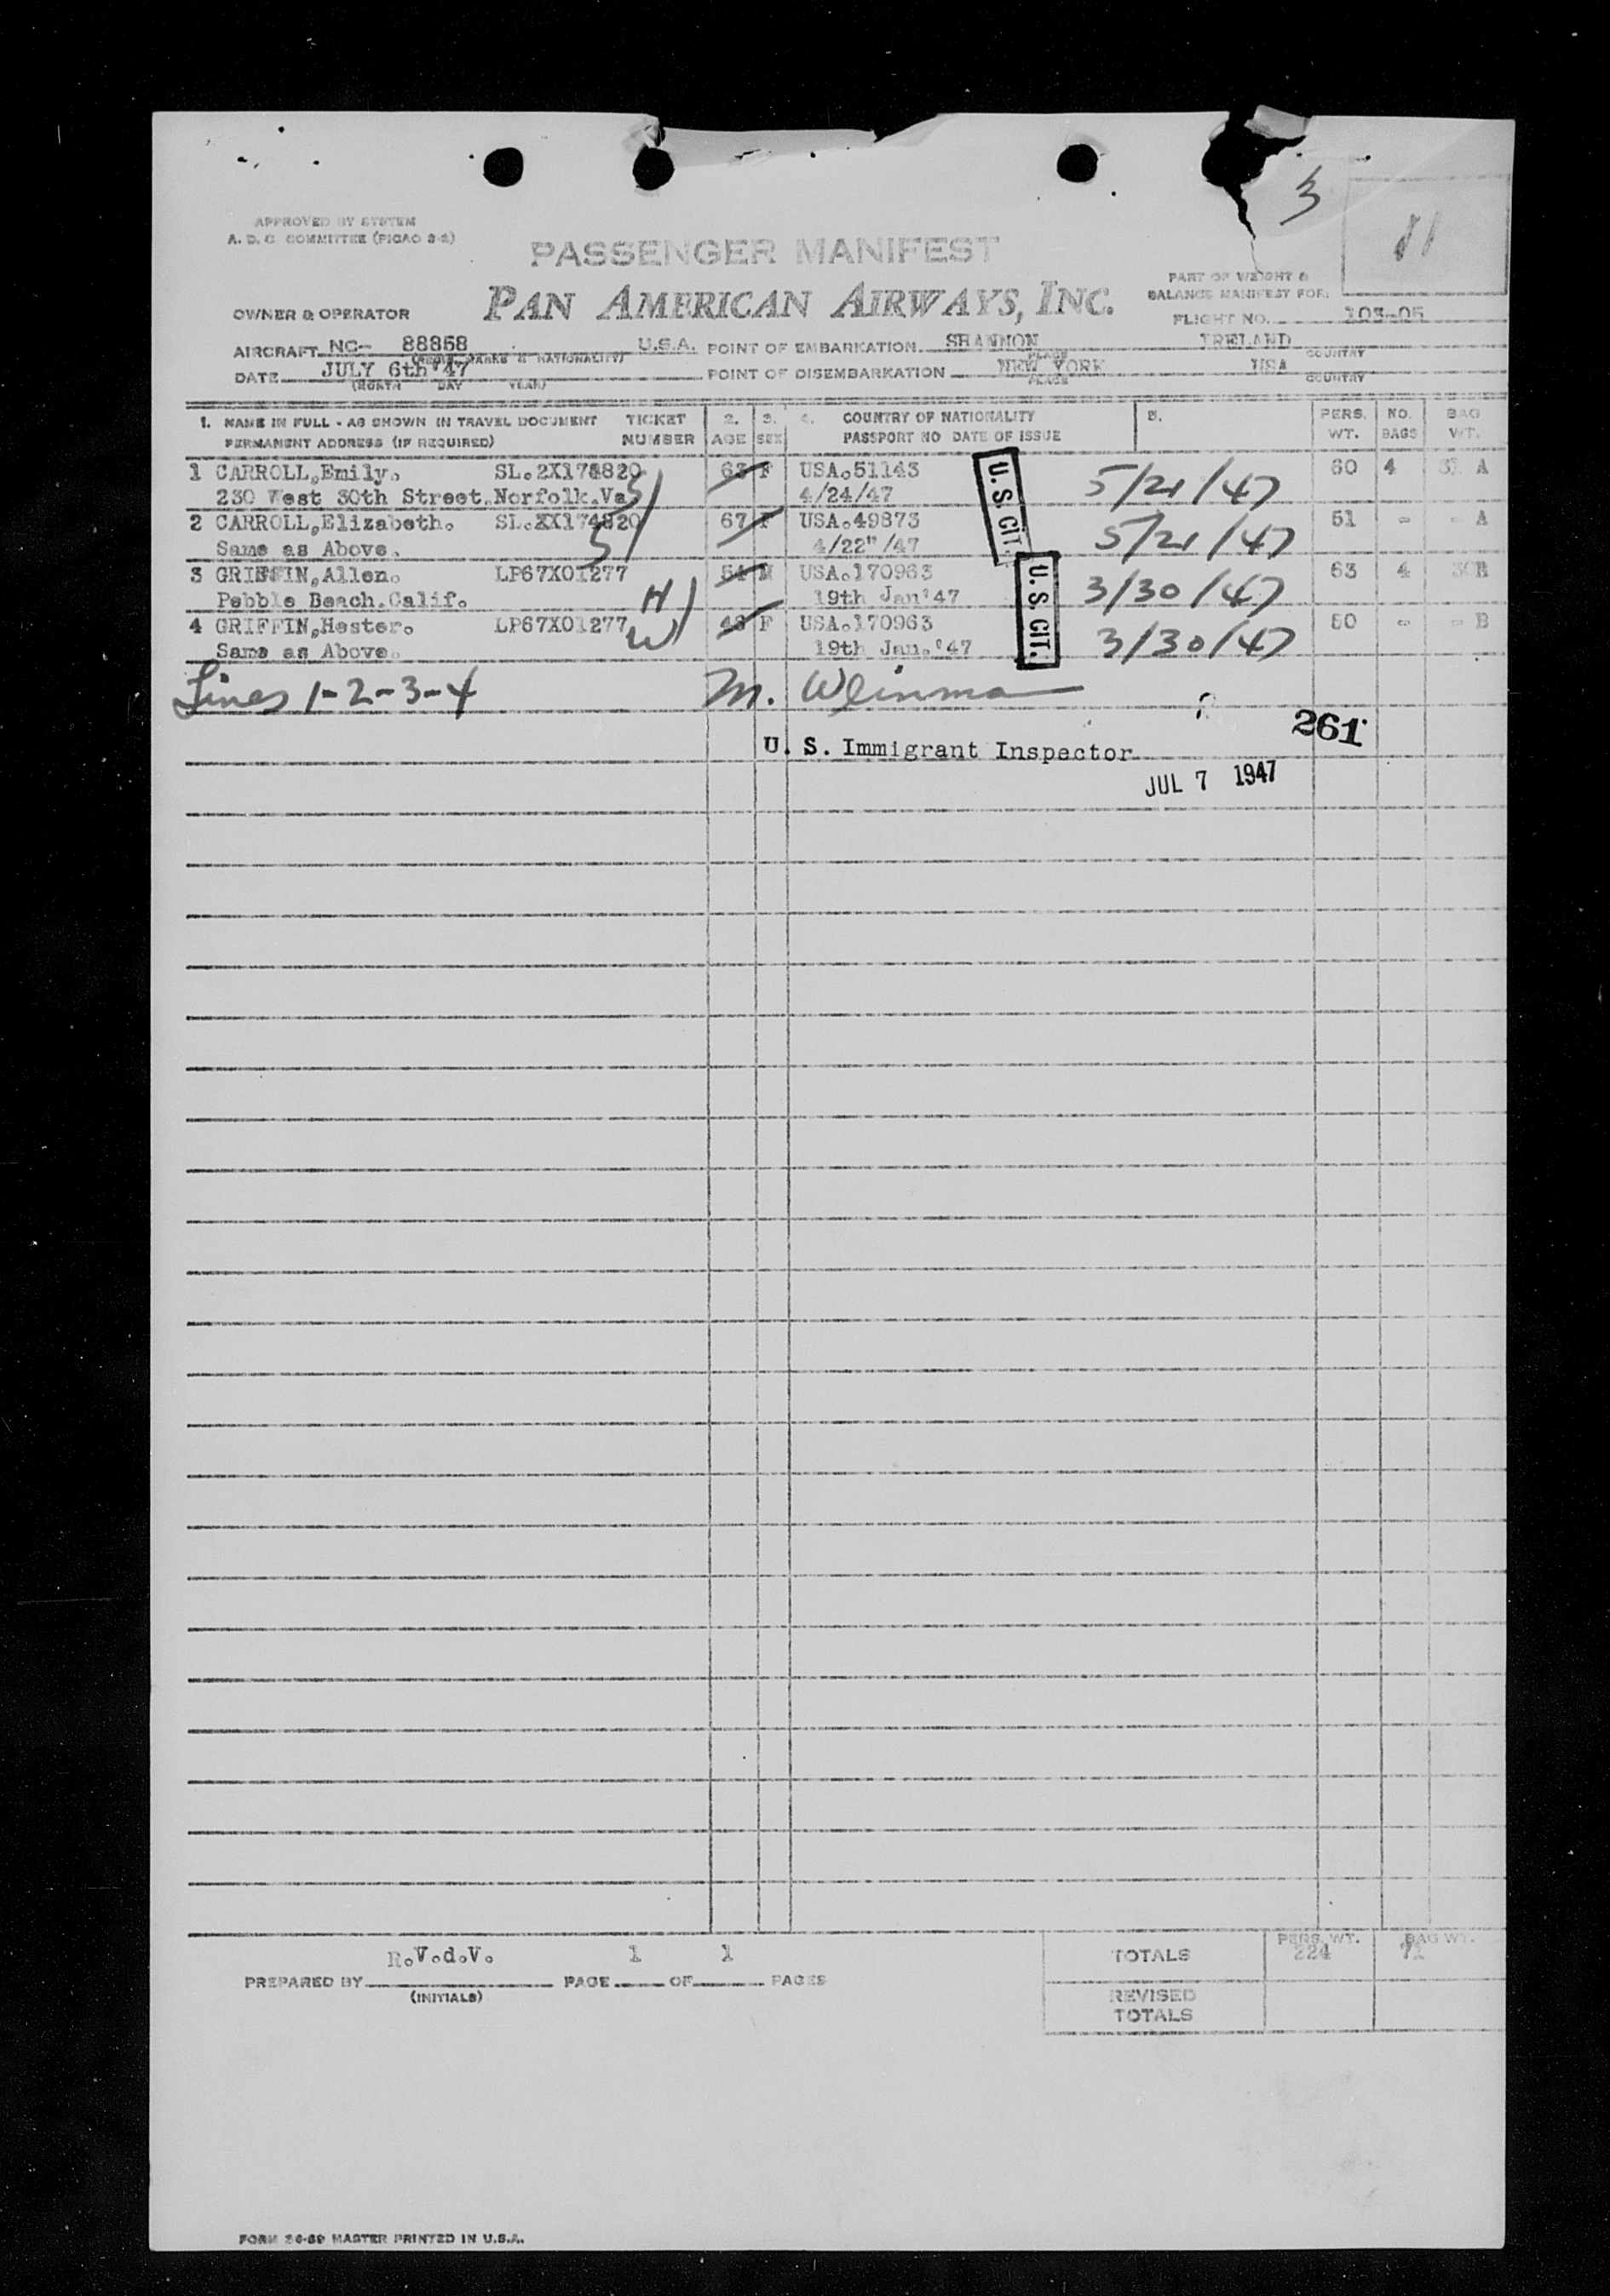 3
11
APPROVED BY SYSTEM
A. D. C COMMITTEE (PICAO 2-2)
PASSENGER MANIFEST
PART OF WEIGHT &
BALANCE MANIFEST FOR:
OWNER & OPERATOR PAN AMERICAN AIRWAYS, INC.
FLIGHT NO. 103-05
AIRCRAFT NC- 88858 U.S.A. POINT OF EMBARKATION SHANNON IRELAND
(REGIS. MARKS & NATIONALITY) PLACE COUNTRY
DATE JULY 6th'47 POINT OF DISEMBARKATION NEW YORK USA
(MONTH DAY YEAR) PLACE COUNTRY
1. NAME IN FULL - AS SHOWN IN TRAVEL DOCUMENT TICKET 2. 3. 4. COUNTRY OF NATIONALITY 5. PERS. NO. BAG
PERMANENT ADDRESS (IF REQUIRED) NUMBER AGE SEX PASSPORT NO DATE OF ISSUE WT. BAGS WT.
1 CARROLL,Emily. SL.2X174820 F USA.51143 U.S. CIT. 5/21/47 60 4 A
230 West 30th Street.Norfolk.Va. S 4/24/47
2 CARROLL,Elizabeth. SL.2X174820 67 F USA.49873 5/21/47 51 - - A
Same as Above. S 4/22"/47
3 GRIFFIN,Allen. LP67X01277 54 M USA.170963 U.S. CIT. 3/30/47 63 4 B
Pebble Beach.Calif. H 19th Jan'47
4 GRIFFIN,Hester. LP67X01277 W F USA.170963 3/30/47 50 - - B
Same as Above. 19th Jan.'47
Lines 1-2-3-4 M. Weinman
261
U. S. Immigrant Inspector
JUL 7 1947
R.V.d.V. 1 1 TOTALS PERS. WT. 224 BAG WT.
PREPARED BY PAGE OF PAGES
(INITIALS) REVISED
TOTALS
FORM 36-69 MASTER PRINTED IN U.S.A.